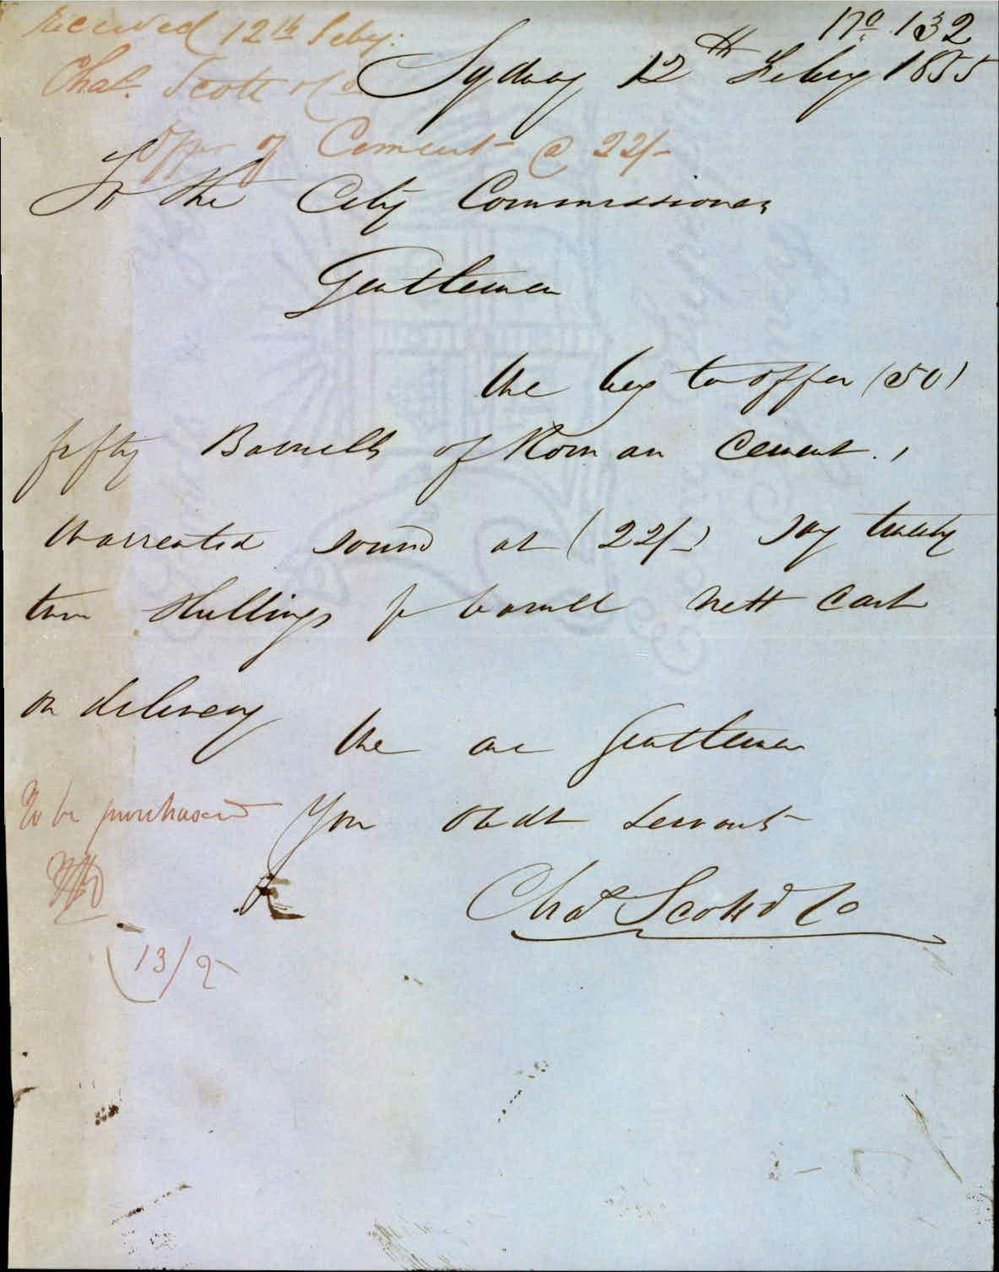 No 132
Received 12th Feby:
Sydney 12th Feby 1855
Chas. Scott & Co
Offer of Cement @ 22/-
To the City Commissioners
Gentlemen
We beg to offer (50)
fifty Barrells of Roman Cement.,
Warranted sound at (22/-) say twenty
two shillings p barrell Nett Cash
on delivery
We are Gentlemen
To be purchased
Your obedt Servants
Chas Scott & Co
13/2